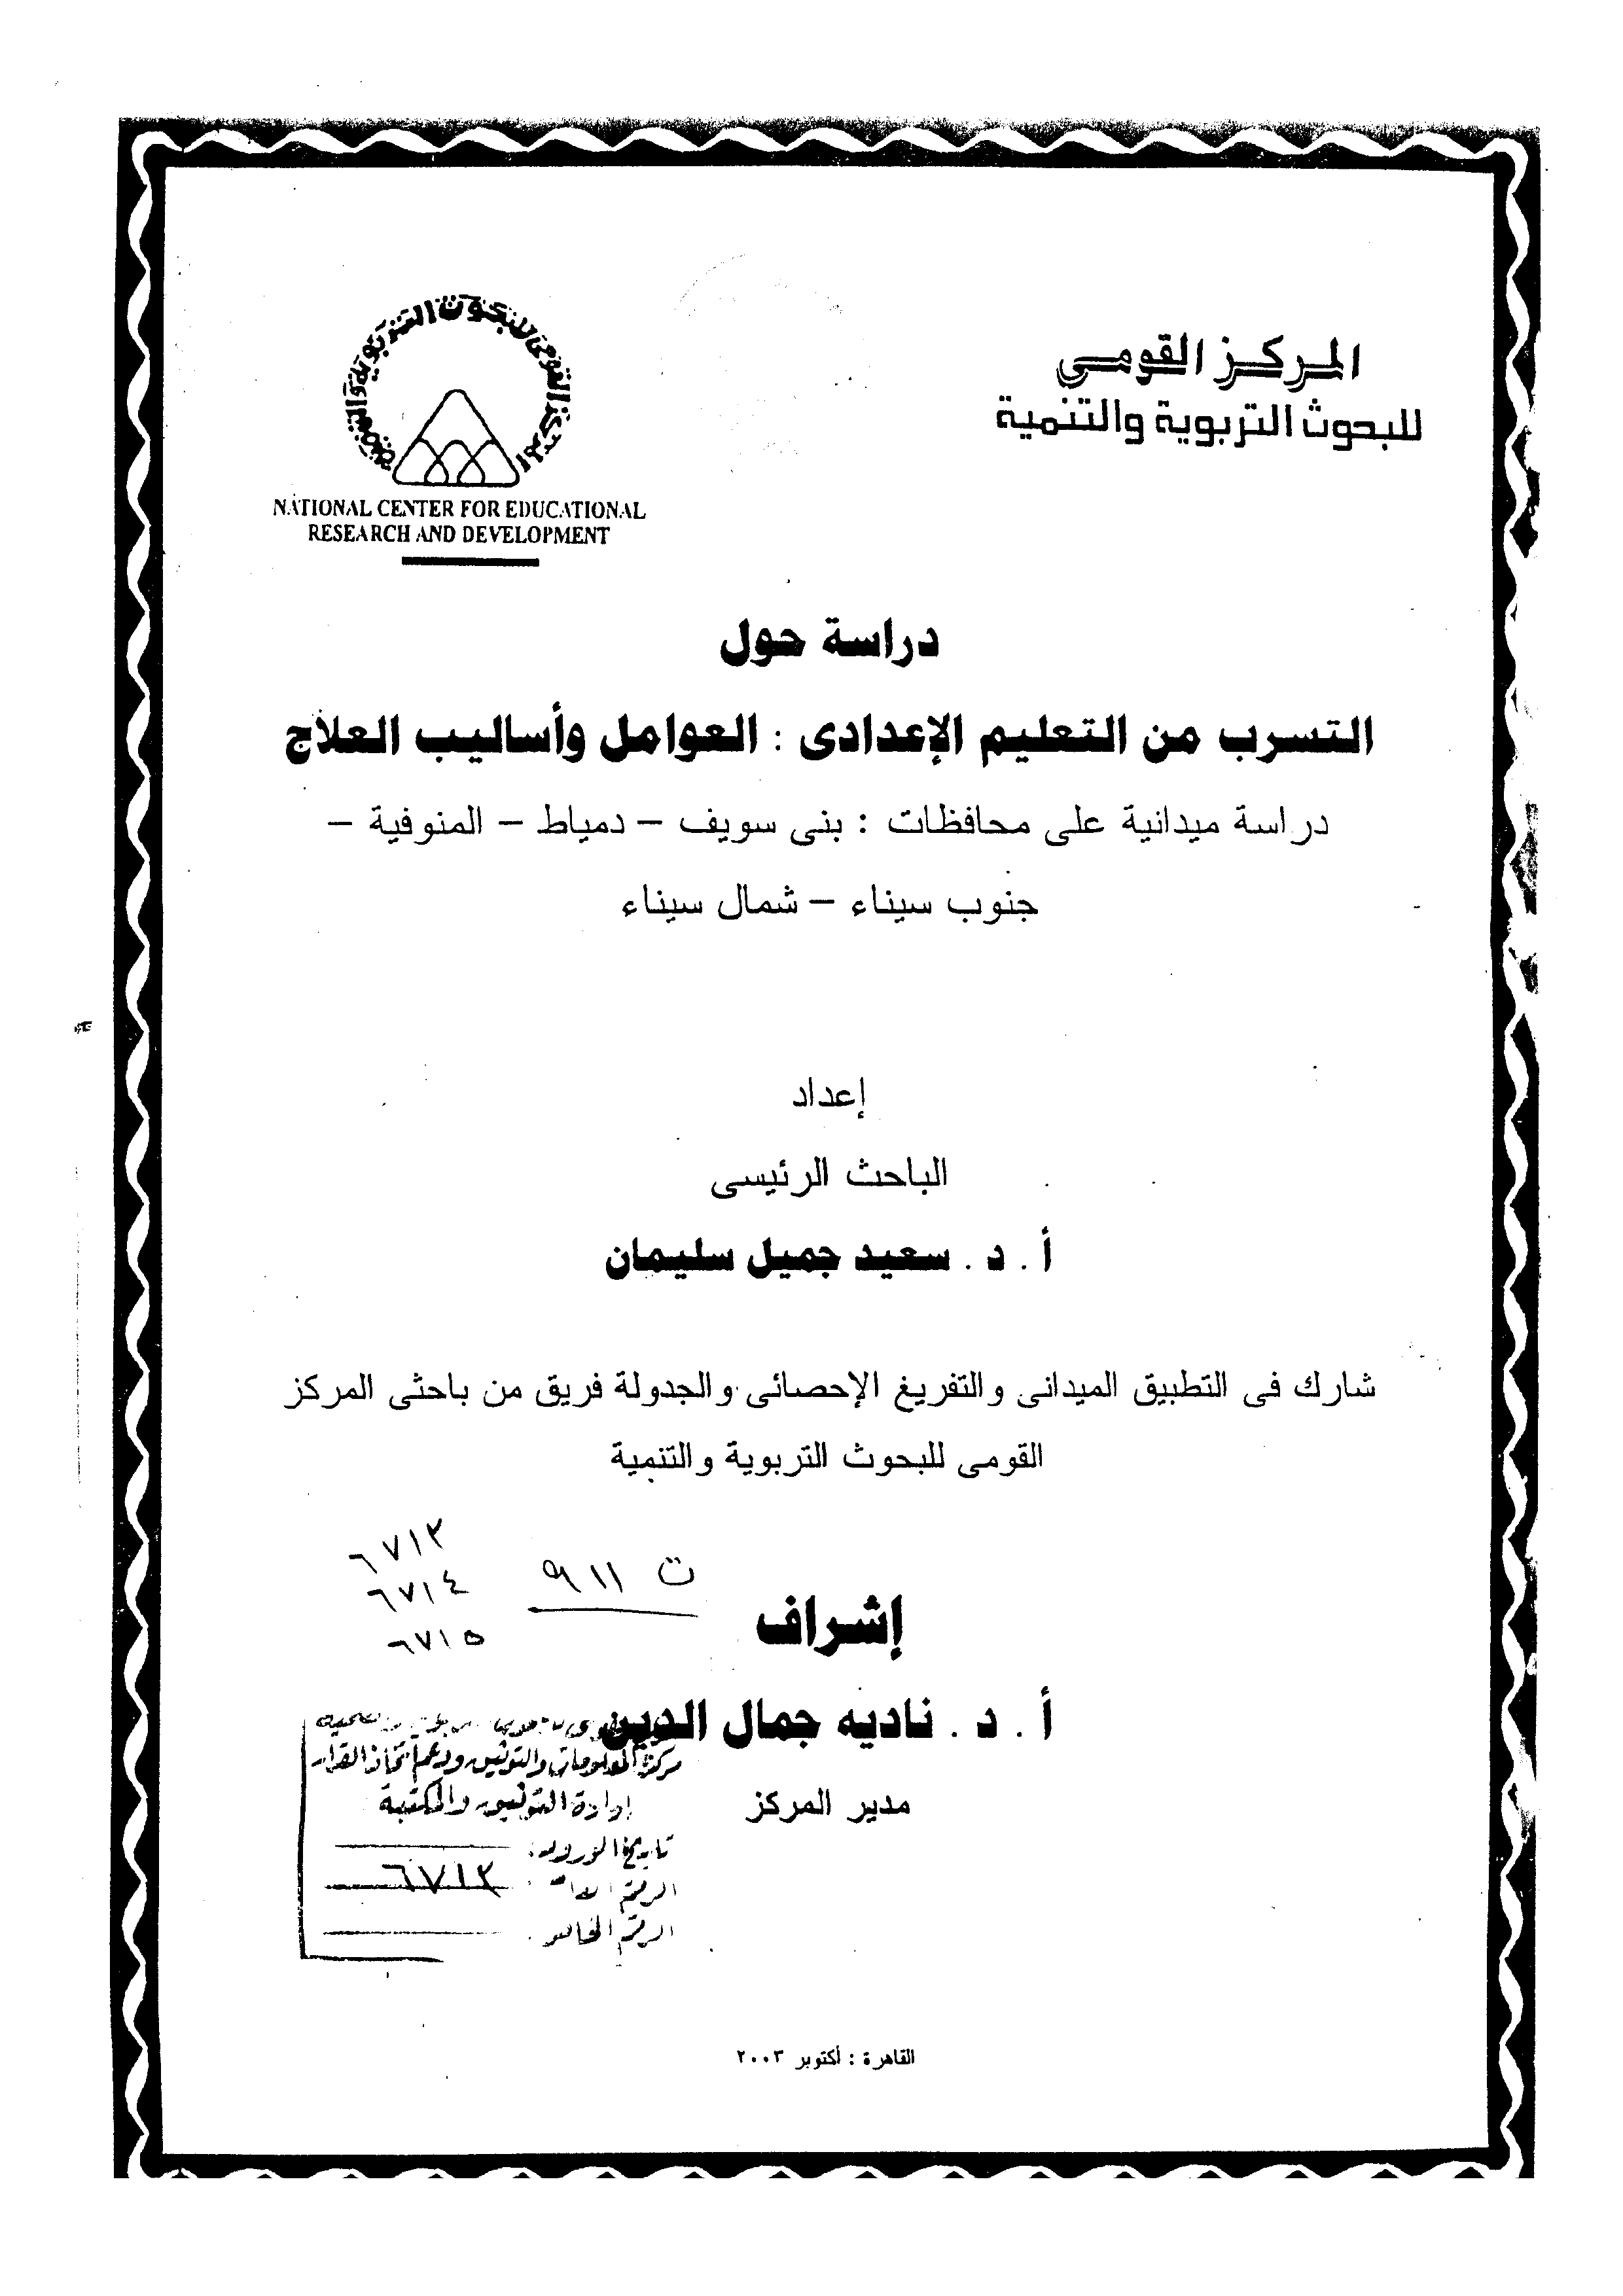 المركز القومي
للبحوث التربوية والتنمية
المركز القومى للبحوث التربوية والتنمية
NATIONAL CENTER FOR EDUCATIONAL
RESEARCH AND DEVELOPMENT
دراسة حول
التسرب من التعليم الإعدادى : العوامل وأساليب العلاج
دراسة ميدانية على محافظات : بنى سويف – دمياط – المنوفية –
جنوب سيناء – شمال سيناء
إعداد
الباحث الرئيسى
أ . د . سعيد جميل سليمان
شارك فى التطبيق الميدانى والتفريغ الإحصائى والجدولة فريق من باحثى المركز
القومى للبحوث التربوية والتنمية
٦٧١٣
٦٧١٤
٦٧١٥
ت ٩١١
إشراف
أ . د . ناديه جمال الدين
مدير المركز
مركز المعلومات والتوثيق ودعم اتخاذ القرار
إدارة التوثيق والمكتبة
تاريخ الورود :
الرقم العام ٦٧١٣
الرقم الخاص
القاهرة : أكتوبر ٢٠٠٣